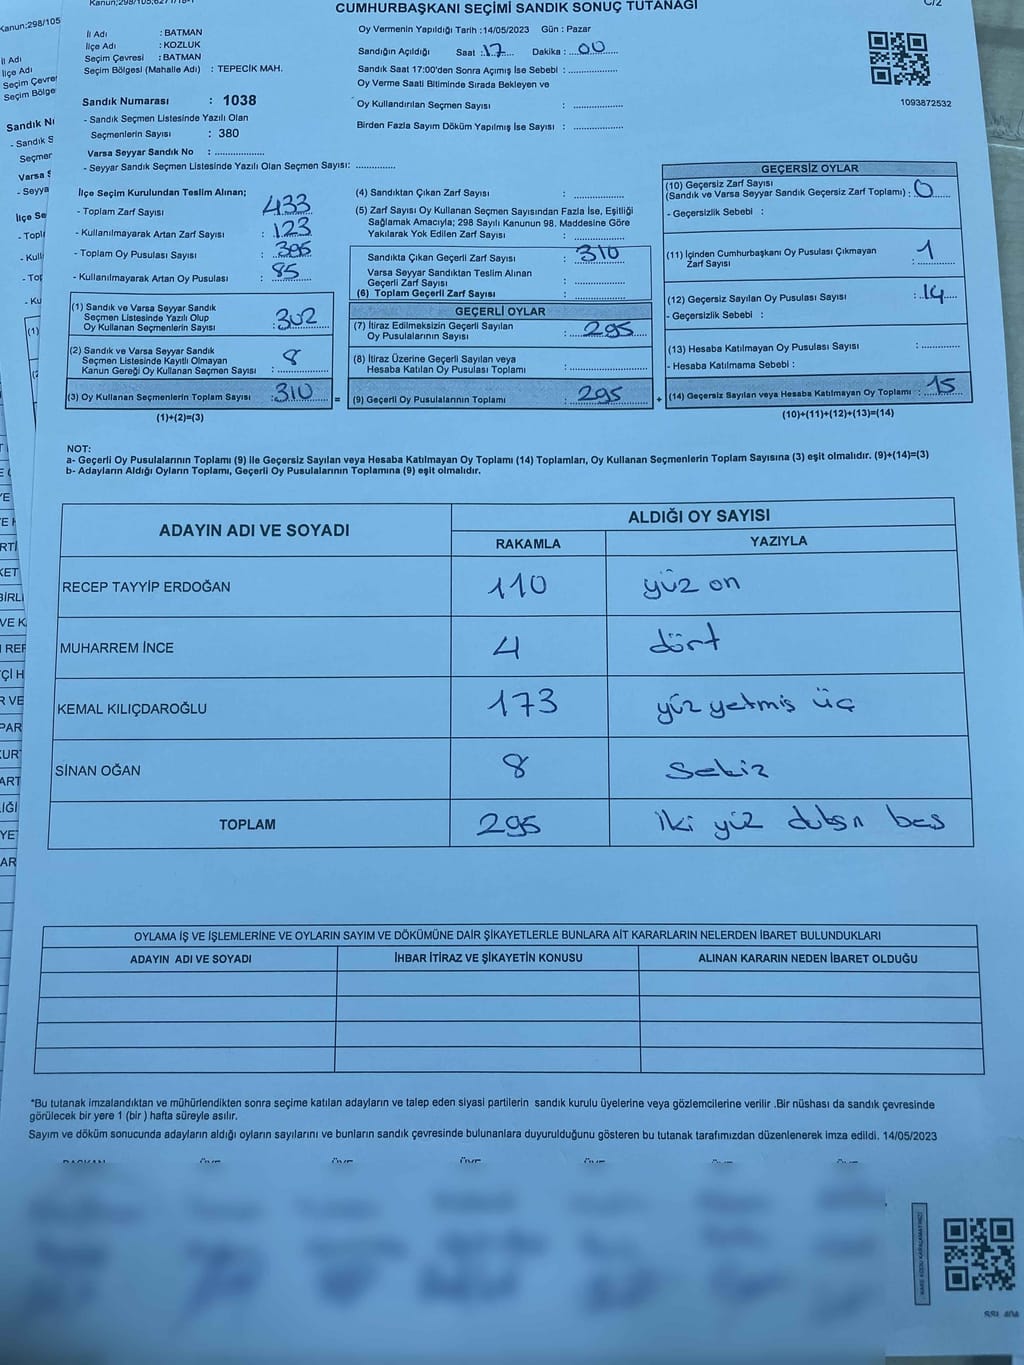 Kanun;298/105;6271/18-1
C/2
CUMHURBAŞKANI SEÇİMİ SANDIK SONUÇ TUTANAĞI
İl Adı : BATMAN
İlçe Adı : KOZLUK
Seçim Çevresi : BATMAN
Seçim Bölgesi (Mahalle Adı) : TEPECİK MAH.
Sandık Numarası : 1038
- Sandık Seçmen Listesinde Yazılı Olan
Seçmenlerin Sayısı : 380
Varsa Seyyar Sandık No : ................
- Seyyar Sandık Seçmen Listesinde Yazılı Olan Seçmen Sayısı: .............
Oy Vermenin Yapıldığı Tarih :14/05/2023 Gün : Pazar
Sandığın Açıldığı Saat :17 Dakika : 00
Sandık Saat 17:00'den Sonra Açımış İse Sebebi : ................
Oy Verme Saati Bitiminde Sırada Bekleyen ve
Oy Kullandırılan Seçmen Sayısı : ................
Birden Fazla Sayım Döküm Yapılmış İse Sayısı : ................
1093872532
İlçe Seçim Kurulundan Teslim Alınan;
- Toplam Zarf Sayısı : 433
- Kullanılmayarak Artan Zarf Sayısı : 123
- Toplam Oy Pusulası Sayısı : 395
- Kullanılmayarak Artan Oy Pusulası : 85
(1) Sandık ve Varsa Seyyar Sandık
Seçmen Listesinde Yazılı Olup
Oy Kullanan Seçmenlerin Sayısı : 302
(2) Sandık ve Varsa Seyyar Sandık
Seçmen Listesinde Kayıtlı Olmayan
Kanun Gereği Oy Kullanan Seçmen Sayısı : 8
(3) Oy Kullanan Seçmenlerin Toplam Sayısı : 310 =
(1)+(2)=(3)
(4) Sandıktan Çıkan Zarf Sayısı : ................
(5) Zarf Sayısı Oy Kullanan Seçmen Sayısından Fazla İse, Eşitliği
Sağlamak Amacıyla; 298 Sayılı Kanunun 98. Maddesine Göre
Yakılarak Yok Edilen Zarf Sayısı : ................
Sandıkta Çıkan Geçerli Zarf Sayısı : 310
Varsa Seyyar Sandıktan Teslim Alınan
Geçerli Zarf Sayısı : ................
(6) Toplam Geçerli Zarf Sayısı : ................
GEÇERLİ OYLAR
(7) İtiraz Edilmeksizin Geçerli Sayılan
Oy Pusulalarının Sayısı : 295
(8) İtiraz Üzerine Geçerli Sayılan veya
Hesaba Katılan Oy Pusulası Toplamı : ................
(9) Geçerli Oy Pusulalarının Toplamı : 295 +
GEÇERSİZ OYLAR
(10) Geçersiz Zarf Sayısı
(Sandık ve Varsa Seyyar Sandık Geçersiz Zarf Toplamı) : 0
- Geçersizlik Sebebi :
(11) İçinden Cumhurbaşkanı Oy Pusulası Çıkmayan
Zarf Sayısı : 1
(12) Geçersiz Sayılan Oy Pusulası Sayısı : 14
- Geçersizlik Sebebi :
(13) Hesaba Katılmayan Oy Pusulası Sayısı : ................
- Hesaba Katılmama Sebebi :
(14) Geçersiz Sayılan veya Hesaba Katılmayan Oy Toplamı : 15
(10)+(11)+(12)+(13)=(14)
NOT:
a- Geçerli Oy Pusulalarının Toplamı (9) ile Geçersiz Sayılan veya Hesaba Katılmayan Oy Toplamı (14) Toplamları, Oy Kullanan Seçmenlerin Toplam Sayısına (3) eşit olmalıdır. (9)+(14)=(3)
b- Adayların Aldığı Oyların Toplamı, Geçerli Oy Pusulalarının Toplamına (9) eşit olmalıdır.
ADAYIN ADI VE SOYADI
ALDIĞI OY SAYISI
RAKAMLA YAZIYLA
RECEP TAYYİP ERDOĞAN 110 yüz on
MUHARREM İNCE 4 dört
KEMAL KILIÇDAROĞLU 173 yüz yetmiş üç
SİNAN OĞAN 8 Sekiz
TOPLAM 295 iki yüz doksn beş
OYLAMA İŞ VE İŞLEMLERİNE VE OYLARIN SAYIM VE DÖKÜMÜNE DAİR ŞİKAYETLERLE BUNLARA AİT KARARLARIN NELERDEN İBARET BULUNDUKLARI
ADAYIN ADI VE SOYADI İHBAR İTİRAZ VE ŞİKAYETİN KONUSU ALINAN KARARIN NEDEN İBARET OLDUĞU
*Bu tutanak imzalandıktan ve mühürlendikten sonra seçime katılan adayların ve talep eden siyasi partilerin sandık kurulu üyelerine veya gözlemcilerine verilir .Bir nüshası da sandık çevresinde
görülecek bir yere 1 (bir ) hafta süreyle asılır.
Sayım ve döküm sonucunda adayların aldığı oyların sayılarını ve bunların sandık çevresinde bulunanlara duyurulduğunu gösteren bu tutanak tarafımızdan düzenlenerek imza edildi. 14/05/2023
BAŞKAN ÜYE ÜYE ÜYE ÜYE ÜYE ÜYE
KARE KODU KARALAMAYINIZ